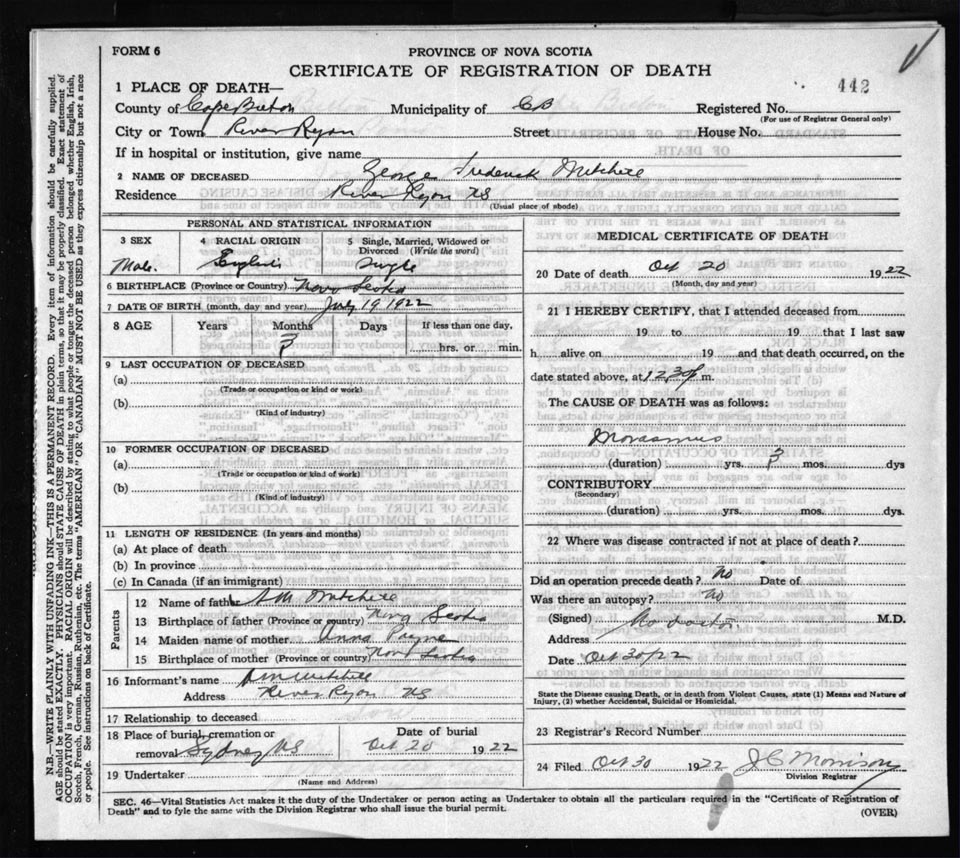 FORM 6
PROVINCE OF NOVA SCOTIA
CERTIFICATE OF REGISTRATION OF DEATH
442
1 PLACE OF DEATH—
County of Cape Breton Municipality of C B Registered No.
(For use of Registrar General only)
City or Town River Ryan Street House No.
If in hospital or institution, give name
2 NAME OF DECEASED George Frederick Mitchell
Residence River Ryan NS
(Usual place of abode)
PERSONAL AND STATISTICAL INFORMATION
3 SEX 4 RACIAL ORIGIN 5 Single, Married, Widowed or Divorced (Write the word)
Male. English Single
6 BIRTHPLACE (Province or Country) Nova Scotia
7 DATE OF BIRTH (month, day and year) July 19, 1922
8 AGE Years Months Days If less than one day,
3 hrs. or min.
9 LAST OCCUPATION OF DECEASED
(a)
(Trade or occupation or kind or work)
(b)
(Kind of industry)
10 FORMER OCCUPATION OF DECEASED
(a)
(Trade or occupation or kind of work)
(b)
(Kind of industry)
11 LENGTH OF RESIDENCE (In years and months)
(a) At place of death
(b) In province
(c) In Canada (if an immigrant)
Parents
12 Name of father A M Mitchell
13 Birthplace of father (Province or country) Nova Scotia
14 Maiden name of mother Anna Payne
15 Birthplace of mother (Province or country) Nova Scotia
16 Informant's name A M Mitchell
Address River Ryan NS
17 Relationship to deceased
18 Place of burial, cremation or removal Sydney NS Date of burial Oct 20 1922
19 Undertaker
(Name and Address)
MEDICAL CERTIFICATE OF DEATH
20 Date of death Oct 20 1922
(Month, day and year)
21 I HEREBY CERTIFY, that I attended deceased from
19 to 19 that I last saw
h alive on 19 and that death occurred, on the
date stated above, at 12.30 p.m.
The CAUSE OF DEATH was as follows:
Marasmus
(duration) yrs. 3 mos. dys
CONTRIBUTORY
(Secondary)
(duration) yrs. mos. dys.
22 Where was disease contracted if not at place of death?
Did an operation precede death? No Date of
Was there an autopsy? No
(Signed) No doctor. M.D.
Address
Date Oct 30/22
State the Disease causing Death, or in death from Violent Causes, state (1) Means and Nature of
Injury, (2) whether Accidental, Suicidal or Homicidal.
23 Registrar's Record Number
24 Filed Oct 30 1922 J C Morrison
Division Registrar
SEC. 46—Vital Statistics Act makes it the duty of the Undertaker or person acting as Undertaker to obtain all the particulars required in the "Certificate of Registration of
Death" and to fyle the same with the Division Registrar who shall issue the burial permit.
(OVER)
N.B.—WRITE PLAINLY WITH UNFADING INK—THIS IS A PERMANENT RECORD. Every item of information should be carefully supplied.
AGE should be stated EXACTLY. PHYSICIANS should STATE CAUSE OF DEATH in plain terms, so that it may be properly classified. Exact statement of
OCCUPATION is very important. RACIAL ORIGIN will be described by stating to what people or tongue the deceased person belonged whether English, Irish,
Scotch, French, German, Russian, Ruthenian, etc. The terms "AMERICAN" OR "CANADIAN" MUST NOT BE USED as they express citizenship but not a race
or people. See instructions on back of Certificate.